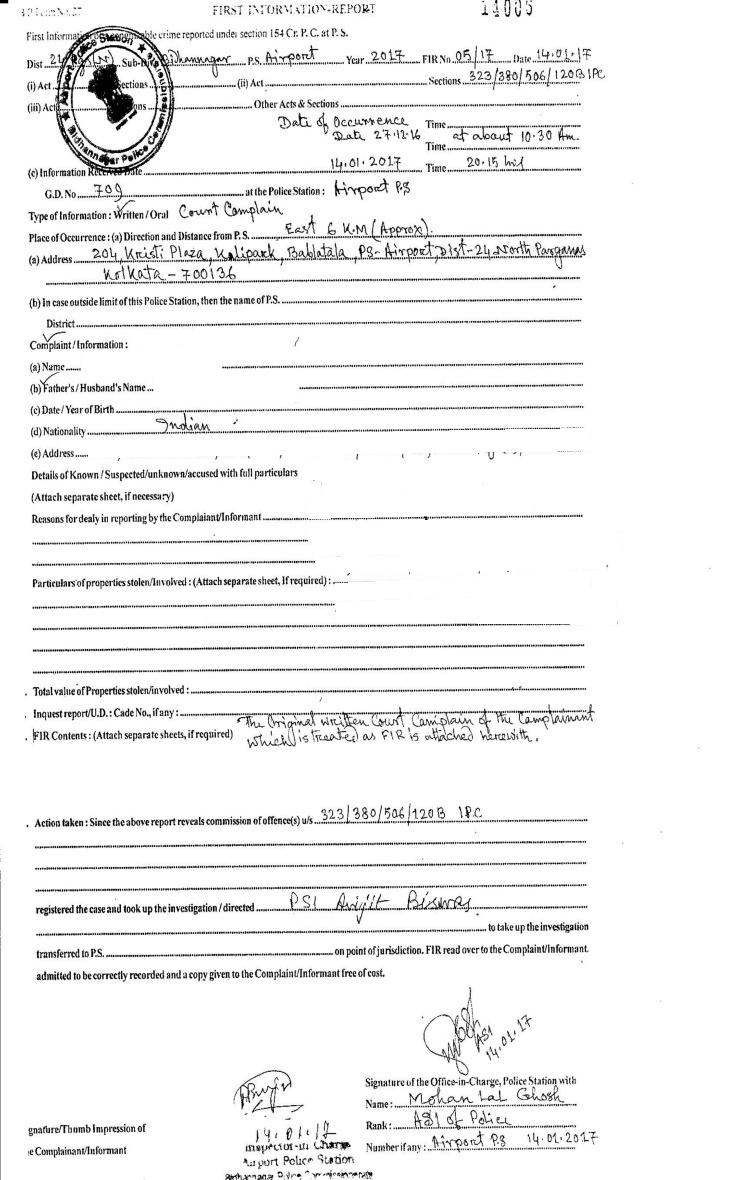 FIRST INFORMATION-REPORT
14005
First Information of cognizable crime reported under section 154 Cr. P. C. at P. S.
Dist Sub-Div Bidhannagar P.S. Airport Year 2017 FIR No 05/17 Date 14.01.17
(i) Act Sections (ii) Act Sections 323/380/506/120B IPC
(iii) Act Other Acts & Sections
Date of Occurrence Time
Date 27.12.16 at about 10.30 Am.
Time
(c) Information Received Date 14.01.2017 Time 20.15 hrs
G.D. No 709 at the Police Station : Airport PS
Type of Information : Written / Oral Court Complain
Place of Occurrence : (a) Direction and Distance from P. S. East 6 K.M (Approx).
(a) Address 204, Kristi Plaza, Kalipark, Bablatala, PS- Airport, Dist-24 North Parganas
Kolkata - 700136
(b) In case outside limit of this Police Station, then the name of P.S.
District
Complaint / Information :
(a) Name
(b) Father's / Husband's Name
(c) Date / Year of Birth
(d) Nationality Indian
(e) Address
Details of Known / Suspected/unknown/accused with full particulars
(Attach separate sheet, if necessary)
Reasons for dealy in reporting by the Complaiant/Informant
Particulars of properties stolen/Involved : (Attach separate sheet, If required) :
Total value of Properties stolen/involved :
Inquest report/U.D. : Cade No., if any :
The Original written Court Camplain of the Complainant
FIR Contents : (Attach separate sheets, if required) which is treated as FIR is attached herewith.
Action taken : Since the above report reveals commission of offence(s) u/s 323/380/506/120B IPC
registered the case and took up the investigation / directed PSI Avijit Biswas
to take up the investigation
transferred to P.S. on point of jurisdiction. FIR read over to the Complaint/Informant.
admitted to be correctly recorded and a copy given to the Complaint/Informant free of cost.
ASI
14.01.17
Signature of the Office-in-Charge, Police Station with
Name : Mohan Lal Ghosh
Rank : ASI of Police
Number if any : Airport PS 14.01.2017
14.01.17
Inspector-in Charge
Airport Police Station
Bidhannagar Police Commissionerate
gnature/Thumb Impression of
e Complainant/Informant